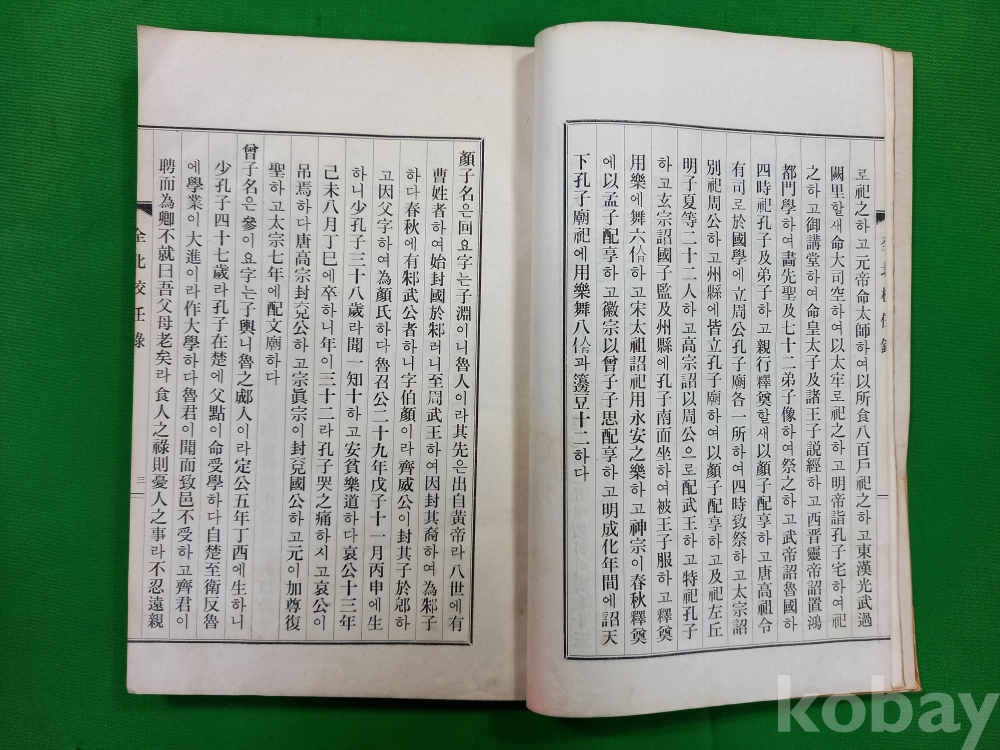 로祀之하고元帝命太師하여以所食八百戶祀之하고東漢光武過
闕里할새命大司空하여以太牢로祀之하고明帝詣孔子宅하여祀
之하고御講堂하여命皇太子及諸王子說經하고西晋靈帝詔置鴻
都門學하여畵先聖及七十二弟子像하여祭之하고武帝詔魯國하
四時祀孔子及弟子하고親行釋奠할새以顔子配享하고唐高祖令
有司로於國學에立周公孔子廟各一所하여四時致祭하고太宗詔
別祀周公하고州縣에皆立孔子廟하여以顔子配享하고及祀左丘
明子夏等二十二人하고高宗詔以周公으로配武王하고特祀孔子
하고玄宗詔國子監及州縣에孔子南面坐하여被王子服하고釋奠
用樂에舞六佾하고宋太祖詔祀用永安之樂하고神宗이春秋釋奠
에以孟子配享하고徽宗以曾子子思配享하고明成化年間에詔天
下孔子廟祀에用樂舞八佾과籩豆十二하다
顔子名은回요字는子淵이니魯人이라其先은出自黃帝라八世에有
曹姓者하여始封國於邾러니至周武王하여因封其裔하여為邾子
하다春秋에有邾武公者하니字伯顔이라齊威公이封其子於郳하
고因父字하여為顔氏하다魯召公二十九年戊子十一月丙申에生
하니少孔子三十八歲라聞一知十하고安貧樂道하다哀公十三年
己未八月丁巳에卒하니年이三十二라孔子哭之痛하시고哀公이
吊焉하다唐高宗封兗公하고宗眞宗이封兗國公하고元이加尊復
聖하고太宗七年에配文廟하다
曾子名은參이요字는子輿니魯之郕人이라定公五年丁酉에生하니
少孔子四十七歲라孔子在楚에父點이命受學하다自楚至衛反魯
에學業이大進이라作大學하다魯君이聞而致邑不受하고齊君이
聘而為卿不就曰吾父母老矣라食人之祿則憂人之事라不忍遠親
全北校任錄
三
kobay